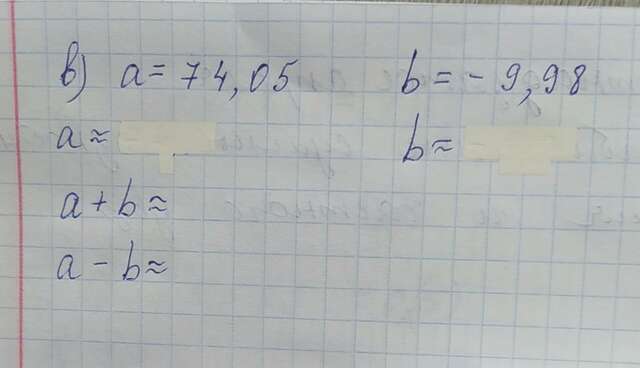 в) a = 74,05 b = - 9,98
a ≈ b ≈
a + b ≈
a - b ≈